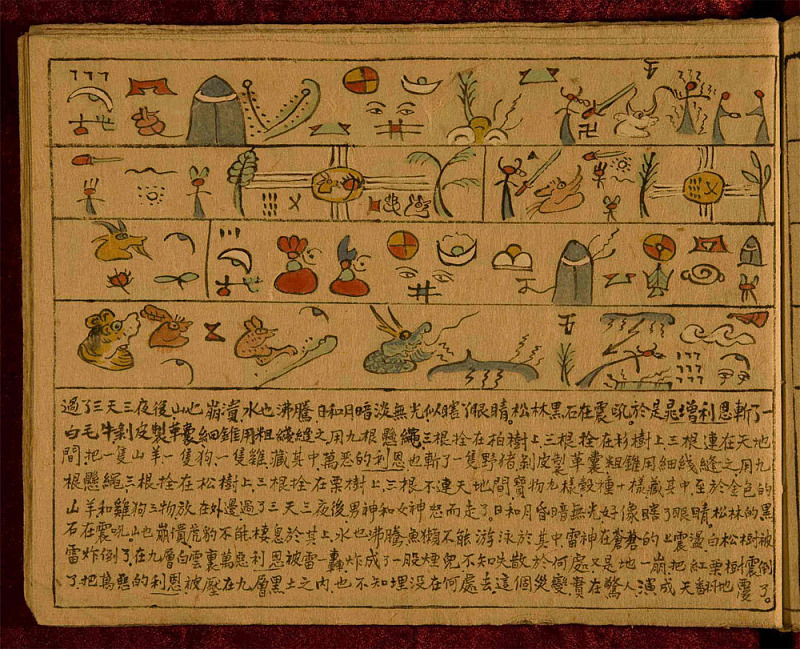 過了三天三夜後山也崩潰水也沸騰日和月暗淡無光似瞎了眼睛。松林黑石在震吼於是晁增利恩斬了一
白毛牛剝皮製革囊細錐用粗綫縫之用九根懸繩三根拴在柏樹上三根拴在杉樹上三根連在天地
間把一隻山羊一隻狗、一隻雞藏其中、萬惡的利恩也斬了一隻野猪剝皮製革囊粗錐用細綫縫之用九
根懸繩三根拴在松樹上三根拴在栗樹上、三根不連天地間寶物九樣穀種十樣藏其中至於金色的
山羊和雞狗三物放在外邊過了三天三夜後男神和女神怒而走了。日和月昏暗無光好像瞎了眼睛松林的黑
石在震吼山也崩潰虎豹不能棲息於其上水也沸騰魚獺不能游泳於其中雷神在蒼蒼的上震盪白松樹被
雷炸倒了在九層白雲裏萬惡利恩被雷一轟炸成了一股煙兒不知失散於何處又是地一崩把紅栗樹震倒
了把萬惡的利恩被壓在九層黑土之內也不知埋没在何處去這個災變實在驚人演成天翻地震了。